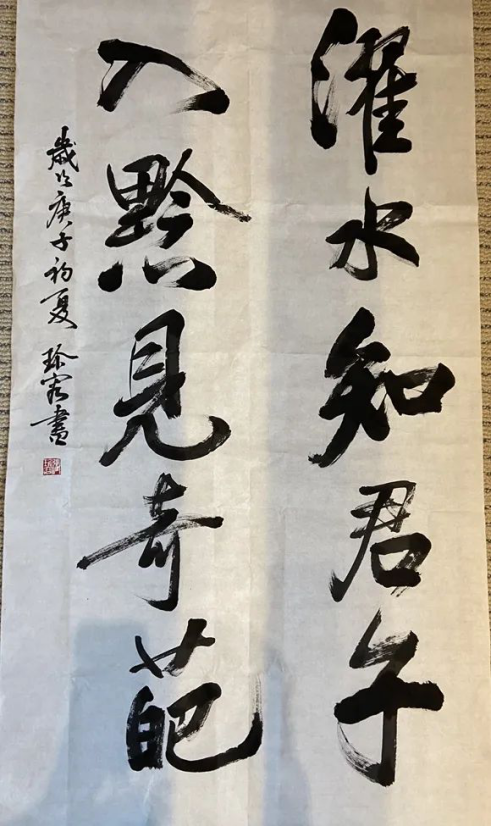 濯水知君子
入黔見奇葩
歲次庚子初夏 珍宏書